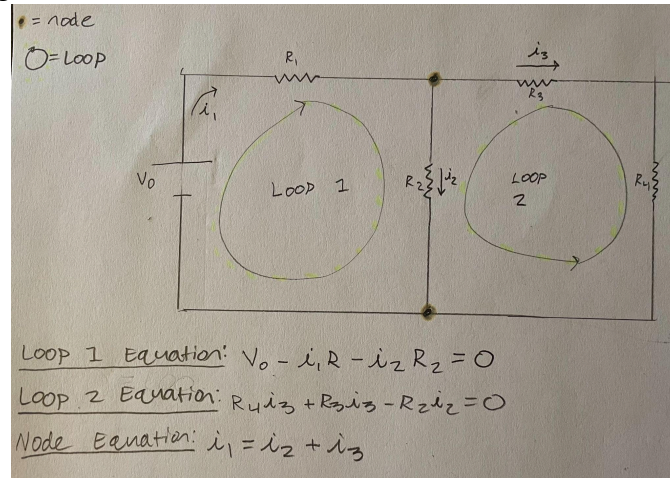 = node
O = LOOP
R₁
i₃
R₃
i₁
V₀
LOOP 1
R₂
i₂
LOOP
2
R₄
Loop 1 Equation: V₀ - i₁R - i₂R₂ = 0
Loop 2 Equation: R₄i₃ + R₃i₃ - R₂i₂ = 0
Node Equation: i₁ = i₂ + i₃